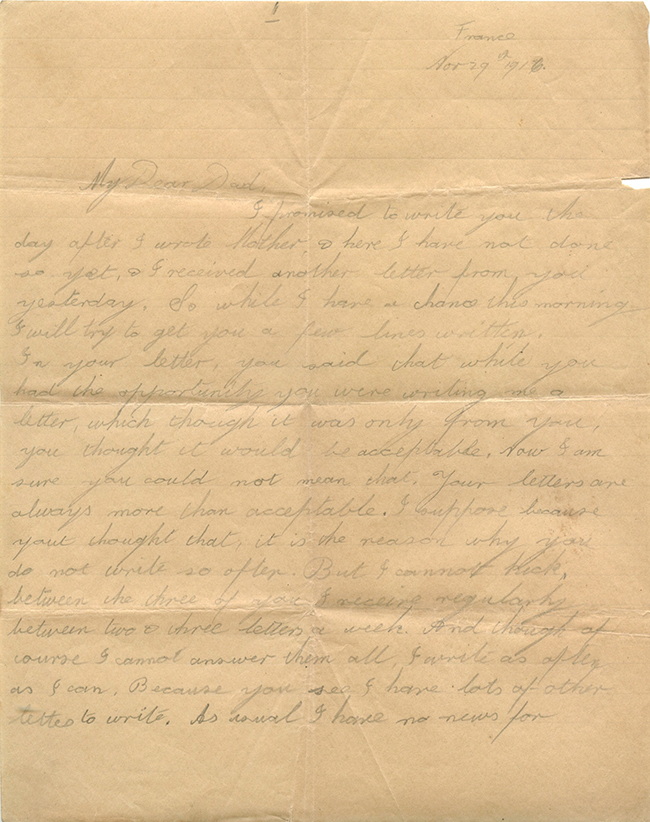 1
France
Nov 29th 1916.
My Dear Dad,
I promised to write you the
day after I wrote Mother & here I have not done
so yet, & I received another letter from you
yesterday. So while I have a chance this morning
I will try to get you a few lines written.
In your letter, you said that while you
had the opportunity you were writing me a
letter, which though it was only from you,
you thought it would be acceptable. Now I am
sure you could not mean that. Your letters are
always more than acceptable. I suppose because
your thought that, it is the reason why you
do not write so often. But I cannot kick,
between the three of you I receive regularly
between two & three letters a week. And though of
course I cannot answer them all, I write as often
as I can. Because you see I have lots of other
to write. As usual I have no news for